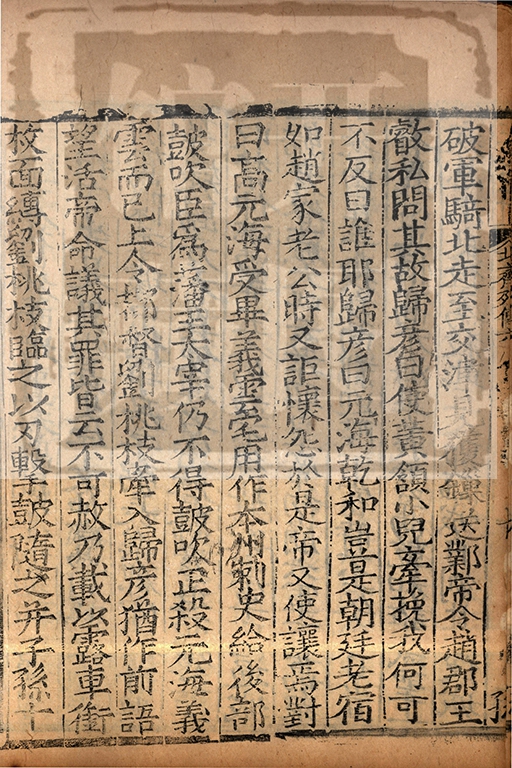 破軍騎北走至交津見獲鏁送鄴帝令趙郡王
叡私問其故歸彥曰使黃頷小兒牽挽我何可
不反曰誰耶歸彥曰元海乾和豈是朝廷老宿
如趙家老公時又詎懷怨於是帝又使讓焉對
曰高元海受畢義雲宅用作本州刺史給後部
鼓吹臣爲藩王太宰仍不得鼓吹正殺元海義
雲而已上令都督劉桃枝牽入歸彥猶作前語
望活帝命議其罪皆云不可赦乃載以露車銜
枚面縛劉桃枝臨之以刃擊鼓隨之并子孫十